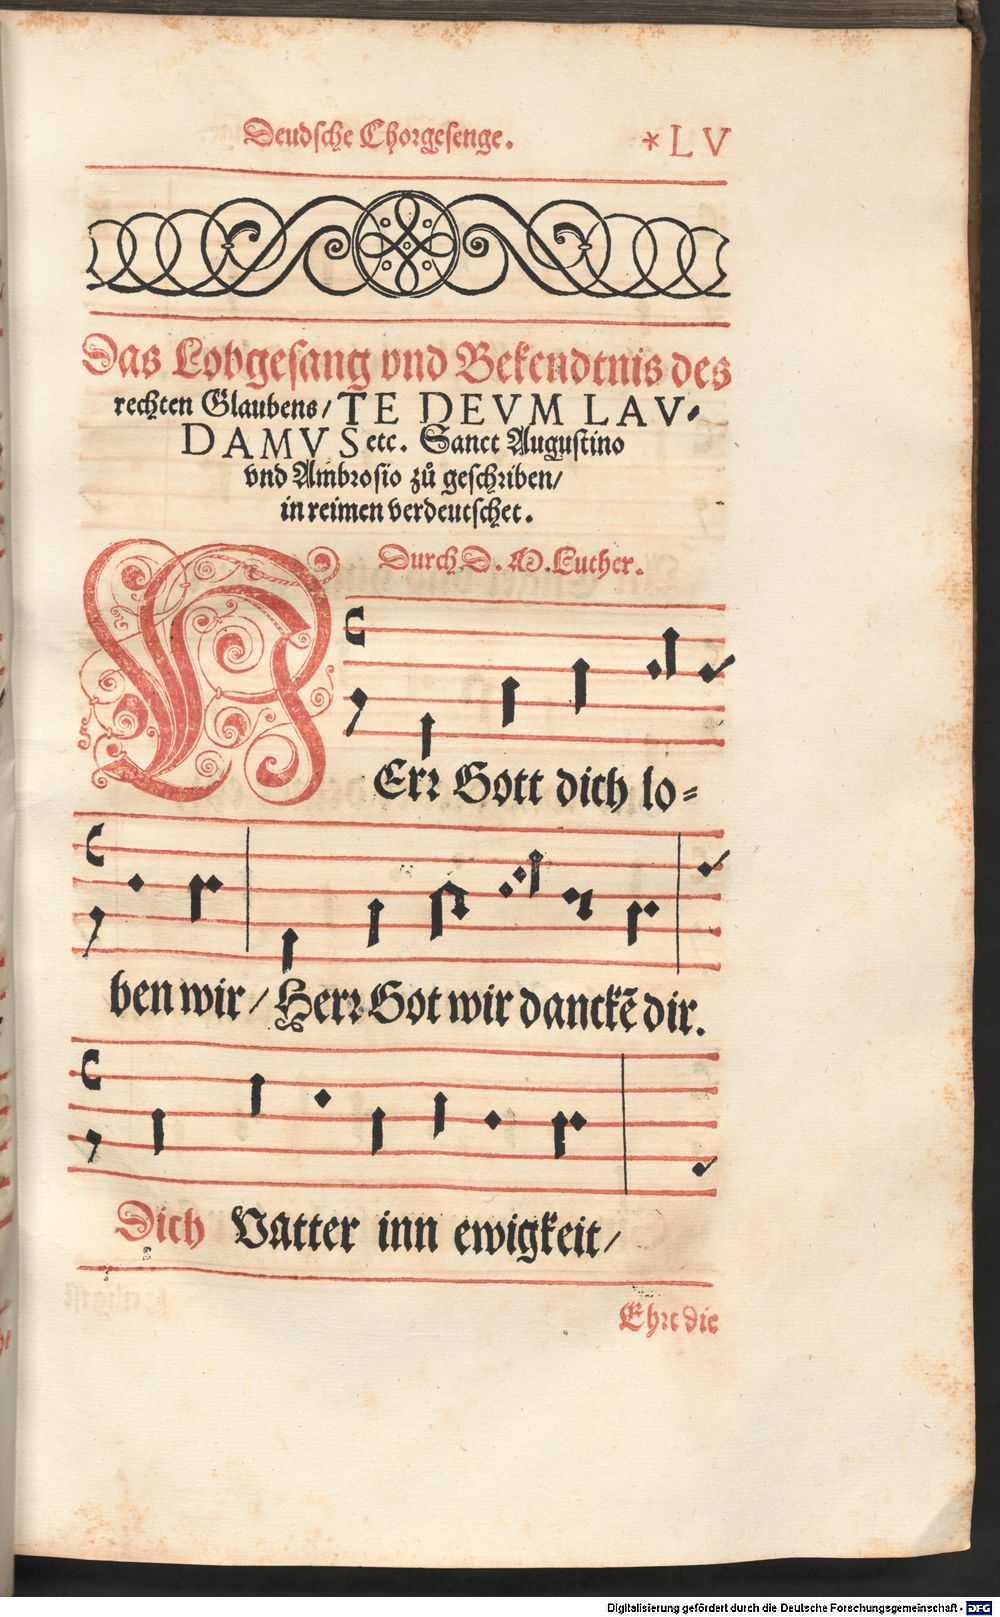 Deudsche Chorgesenge. *LV
Das Lobgesang vnd Bekendtnis des
rechten Glaubens/ TE DEVM LAV-
DAMVS etc. Sanct Augustino
vnd Ambrosio zů geschriben/
in reimen verdeutschet.
Durch D. M. Luther.
HErr Gott dich lo-
ben wir/ Herr Got wir danckẽ dir.
Dich Vatter inn ewigkeit/
Ehre die
Digitalisierung gefördert durch die Deutsche Forschungsgemeinschaft - DFG